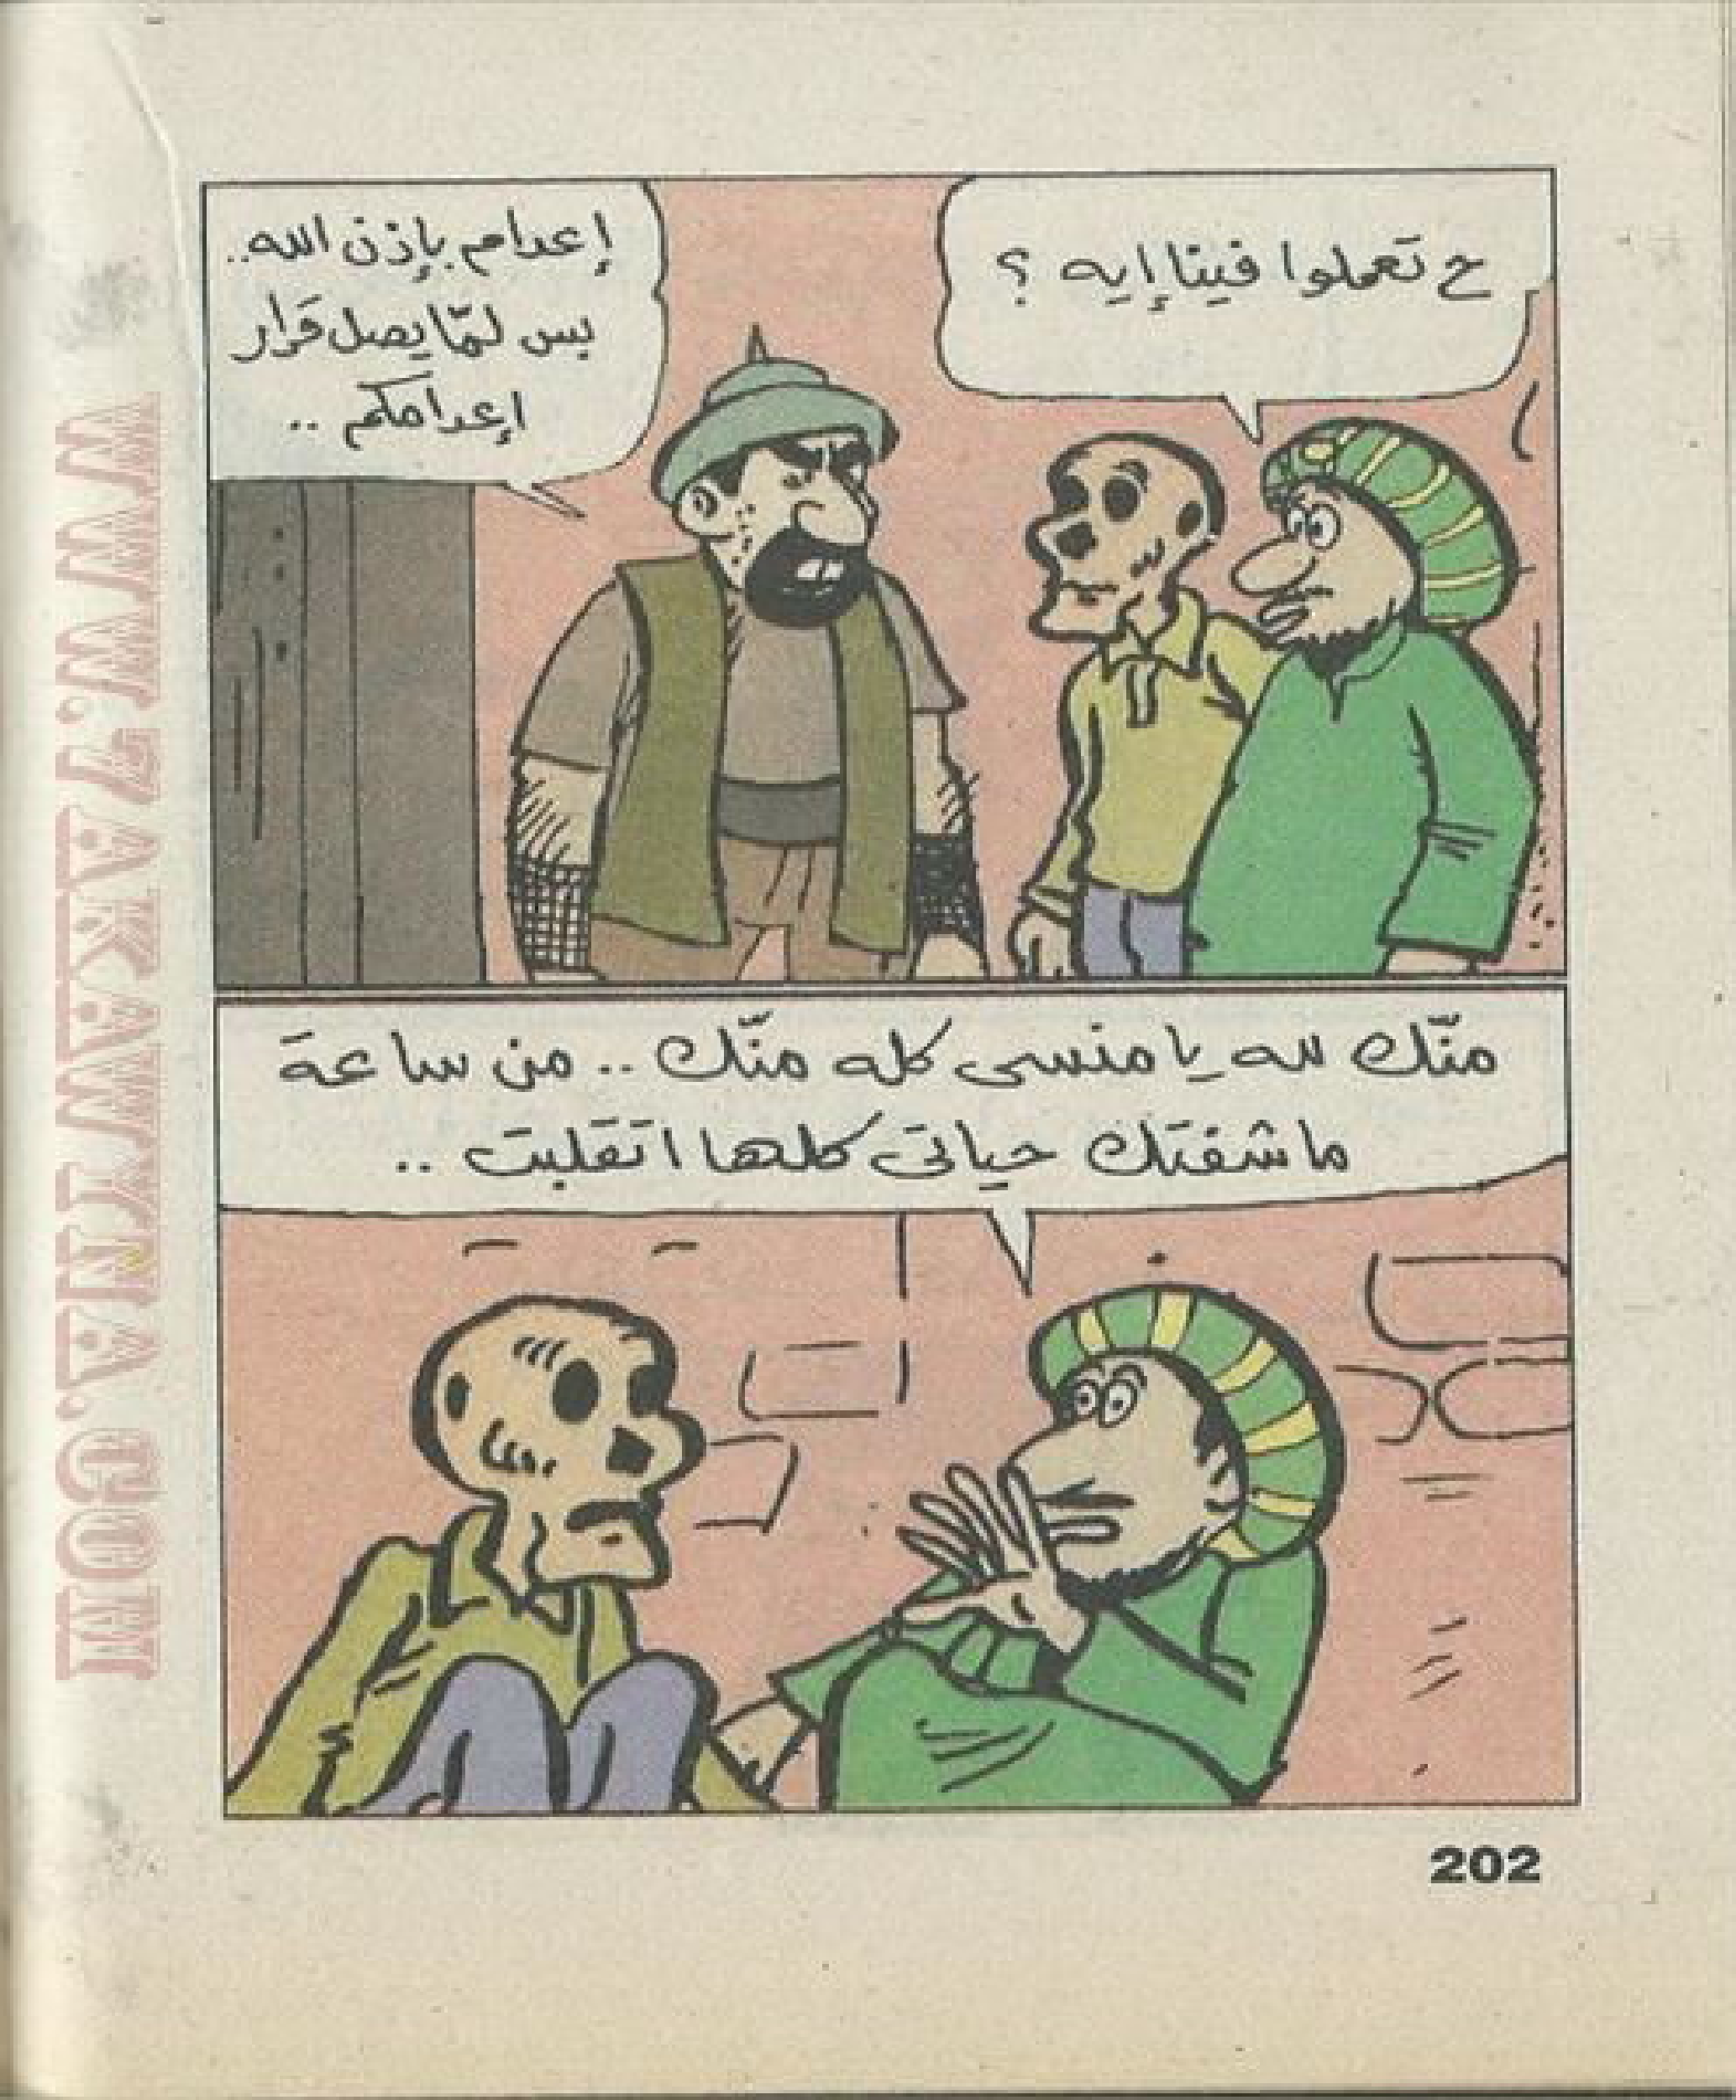 ح تعملوا فينا إيه ؟
إعدام بإذن الله..
بس لمّا يصل قرار
إعدامكم ..
منّك لله يا منسى كله منّك .. من ساعة
ما شفتك حياتى كلها اتقلبت ..
202
WWW.7AKAWINA.COM